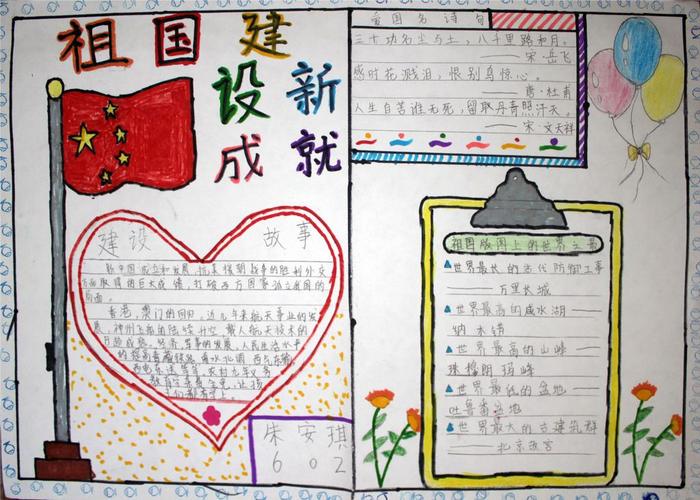 祖国建
设新
成就
爱国名诗句
三十功名尘与土，八千里路和月。
——宋·岳飞
感时花溅泪，恨别鸟惊心。
——唐·杜甫
人生自苦谁无死，留取丹青照汗天。
——宋·文天祥
建设 故事
新中国成立和发展，抗美援朝战争的胜利外交
方面取得的巨大成绩，打破西方国家孤立我国的
局面。
香港，澳门的回归，近几年来航天事业的发
展，神州飞船的陆续升空，载人航天技术的
日趋成熟，经济军事的发展，人民生活水平
的提高青藏铁路，南水北调 西气东输，
西电东送等等，农村九年义务
教育学杂费全免，让孩
子们都有书上。
朱安琪
602
祖国版图上的世界之最
世界最长的古代防御工事
——万里长城
世界最高的咸水湖——
纳木错
世界最高的山峰——
珠穆朗玛峰
世界最低的盆地——
吐鲁番盆地
世界最大的古建筑群
——北京故宫